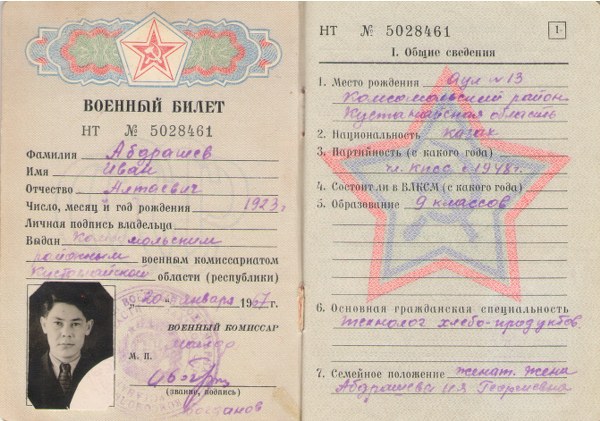 ВОЕННЫЙ БИЛЕТ
НТ № 5028461
Фамилия Абдрашев
Имя Иван
Отчество Алтаевич
Число, месяц и год рождения 1923 г
Личная подпись владельца
Выдан Комсомольским
районным военным комиссариатом
Кустанайской области (республики)
"20" января 1967 г.
ВОЕННЫЙ КОМИССАР
майор
М. П.
(звание, подпись)
Богданов
НТ № 5028461
1
I. Общие сведения
1. Место рождения Аул N 13
Комсомольский район
Кустанайская область
2. Национальность казах
3. Партийность (с какого года)
чл. КПСС с 1948 г.
4. Состоит ли в ВЛКСМ (с какого года)
5. Образование 9 классов
6. Основная гражданская специальность
технолог хлебо-продуктов
7. Семейное положение женат. жена
Абдрашева Георгиевна